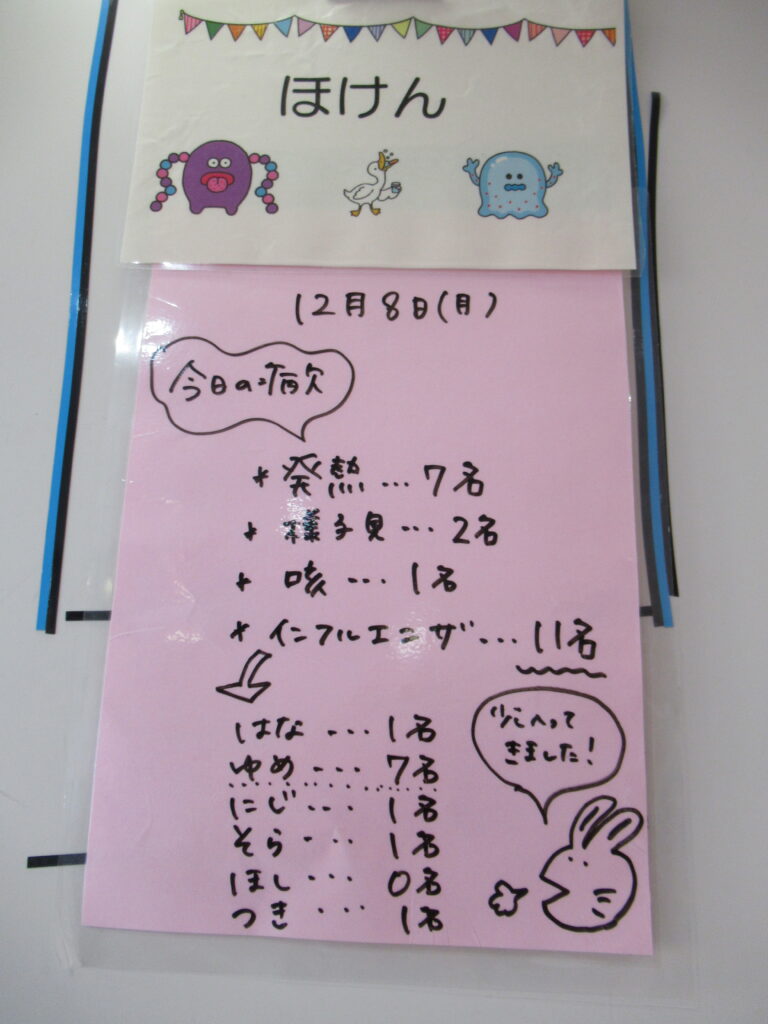 ほけん
12月8日(月)
今日の病欠
* 発熱...7名
* 様子見...2名
* 咳...1名
* インフルエンザ...11名
はな...1名
ゆめ...7名
にじ...1名
そら...1名
ほし...0名
つき...1名
少しへって
きました!